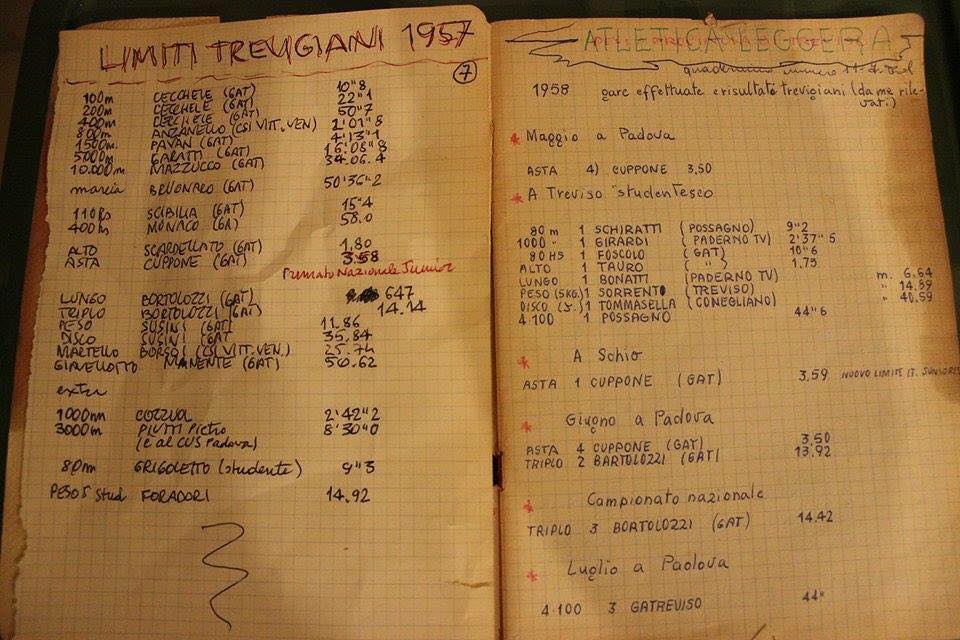 LIMITI TREVIGIANI 1957
7
100m CECCHELE (GAT) 10"8
200m CECCHELE (GAT) 22"1
400m CECCHELE (GAT) 50"7
800m ANZANELLO (CSI VITT. VEN) 2'01"8
1500m. PAVAN (GAT) 4'13"1
5000m GARATTI (GAT) 16'08"8
10.000m MAZZUCCO (GAT) 34.06.4
marcia BRUGNARO (GAT) 50'36"2
110hs SCIBILIA (GAT) 15"4
400hs MONACO (GA) 58.0
ALTO SCARDELLATO (GAT) 1,80
ASTA CUPPONE (GAT) 3.58
Primato Nazionale Junior
LUNGO BORTOLOZZI (GAT) 647
TRIPLO BORTOLOZZI (GAT) 14.14
PESO SUSINI (GAT) 11.86
DISCO SUSINI (GAT 35,84
MARTELLO BORSOI (CSI VITT. VEN.) 25.74
GIAVELLOTTO MANENTE (GAT) 50.62
extra
1000m COZZUOL 2'42"2
3000m PIUTTI Pietro 8'30"0
(è al CUS Padova)
80m GRIGOLETTO (studente) 9"3
PESO 5 Stud FORADORI 14.92
ATLETICA LEGGERA
quaderno numero 11
1958 gare effettuate e risultati trevigiani (da me rile-
vati.)
* Maggio a Padova
ASTA 4) CUPPONE 3,50
* A Treviso "studentesco
80 m 1 SCHIRATTI (POSSAGNO) 9"2
1000 " 1 GIRARDI (PADERNO TV) 2'37"5
80 HS 1 FOSCOLO (GAT) 10"6
ALTO 1 TAURO ( " ) 1.75
LUNGO 1 BONATTI (PADERNO TV) m. 6.64
PESO (5KG.) 1 SORRENTO (TREVISO) " 14.89
DISCO ( ) 1 TOMMASELLA (CONEGLIANO) " 40.59
4.100 1 POSSAGNO 44"6
* A Schio
ASTA 1 CUPPONE (GAT) 3,59 NUOVO LIMITE IT. JUNIORES
* Giugno a Padova
ASTA 4 CUPPONE (GAT) 3,50
TRIPLO 2 BARTOLOZZI (GAT) 13,92
* Campionato nazionale
TRIPLO 3 BORTOLOZZI (GAT) 14.42
* Luglio a Padova
4.100 3 GATREVISO 44"